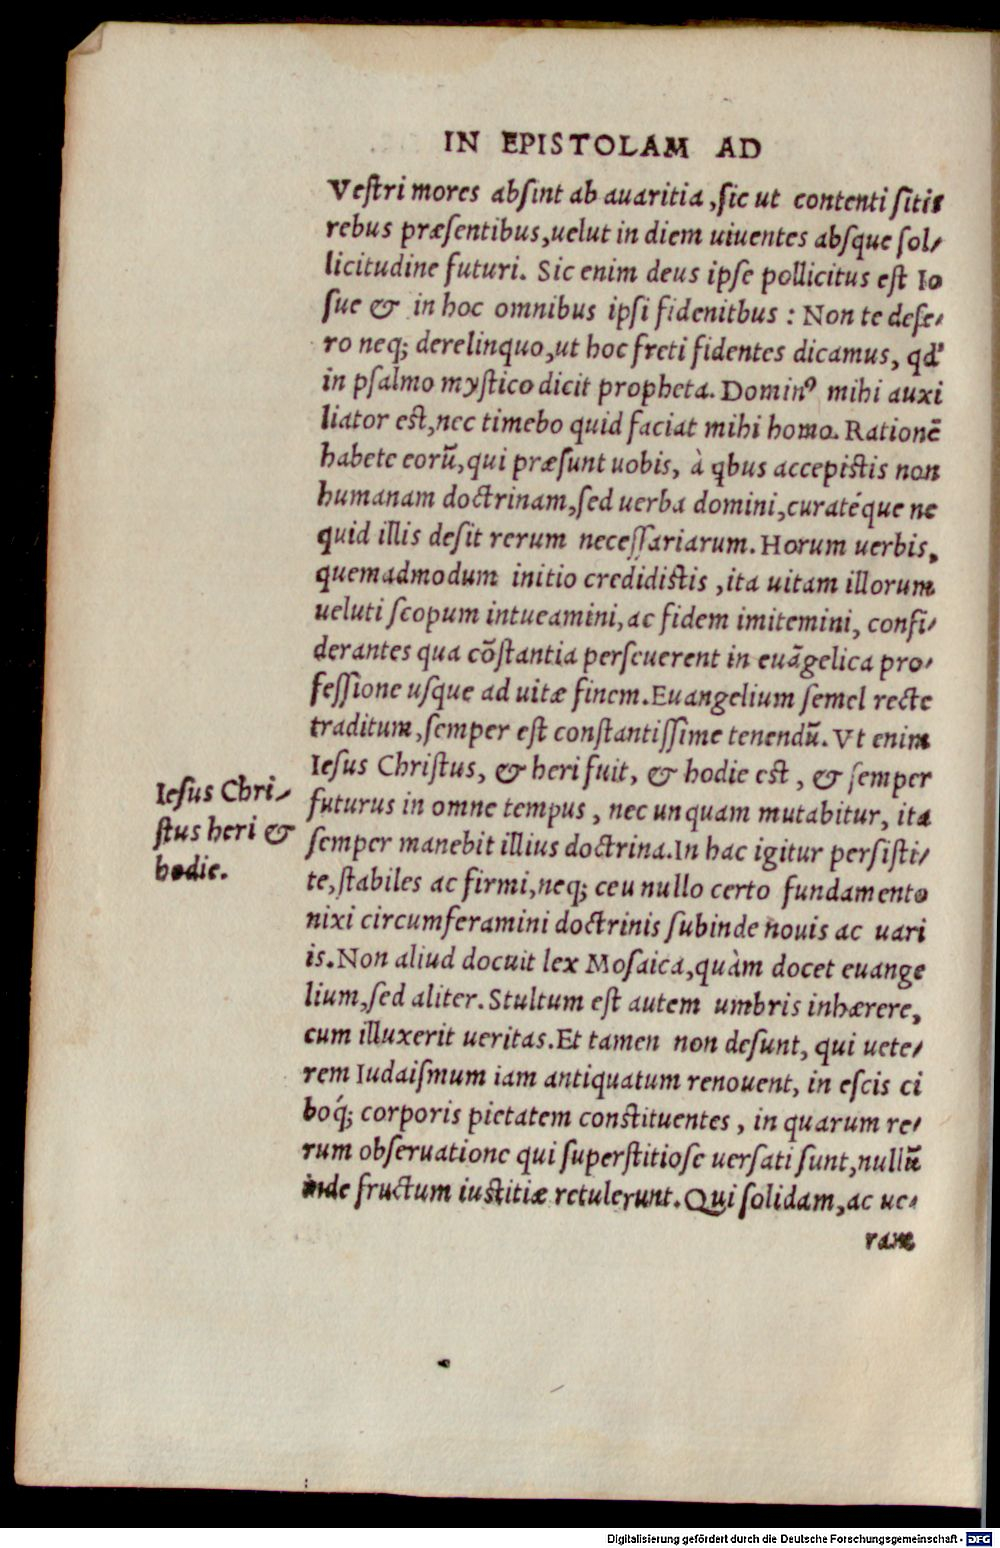 IN EPISTOLAM AD
Veſtri mores abſint ab auaritia, ſic ut contenti ſitis
rebus præſentibus, uelut in diem uiuentes abſque ſol-
licitudine futuri. Sic enim deus ipſe pollicitus eſt Io
ſue & in hoc omnibus ipſi fidenitbus : Non te deſe-
ro neq; derelinquo, ut hoc freti fidentes dicamus, qd'
in pſalmo myſtico dicit propheta. Dominꝰ mihi auxi
liator eſt, nec timebo quid faciat mihi homo. Rationẽ
habete eorũ, qui præſunt uobis, à qbus accepiſtis non
humanam doctrinam, ſed uerba domini, curatéque ne
quid illis deſit rerum neceſſariarum. Horum uerbis,
quemadmodum initio credidiſtis, ita uitam illorum
ueluti ſcopum intueamini, ac fidem imitemini, conſi-
derantes qua cõſtantia perſeuerent in euãgelica pro-
feſſione uſque ad uitæ finem. Euangelium ſemel recte
traditum, ſemper eſt conſtantiſſime tenendũ. Vt enim
Ieſus Chriſtus, & heri fuit, & hodie eſt, & ſemper
futurus in omne tempus, nec unquam mutabitur, ita
ſemper manebit illius doctrina. In hac igitur perſiſti-
te, ſtabiles ac firmi, neq; ceu nullo certo fundamento
nixi circumferamini doctrinis ſubinde nouis ac uari
is. Non aliud docuit lex Moſaica, quàm docet euange
lium, ſed aliter. Stultum eſt autem umbris inhærere,
cum illuxerit ueritas. Et tamen non deſunt, qui uete-
rem Iudaiſmum iam antiquatum renouent, in eſcis ci
boq́; corporis pietatem conſtituentes, in quarum re-
rum obſeruatione qui ſuperſtitioſe uerſati ſunt, nullũ
inde fructum iuſtitiæ retulerunt. Qui ſolidam, ac ue-
ram
Ieſus Chri-
ſtus heri &
hodie.
Digitalisierung gefördert durch die Deutsche Forschungsgemeinschaft - DFG